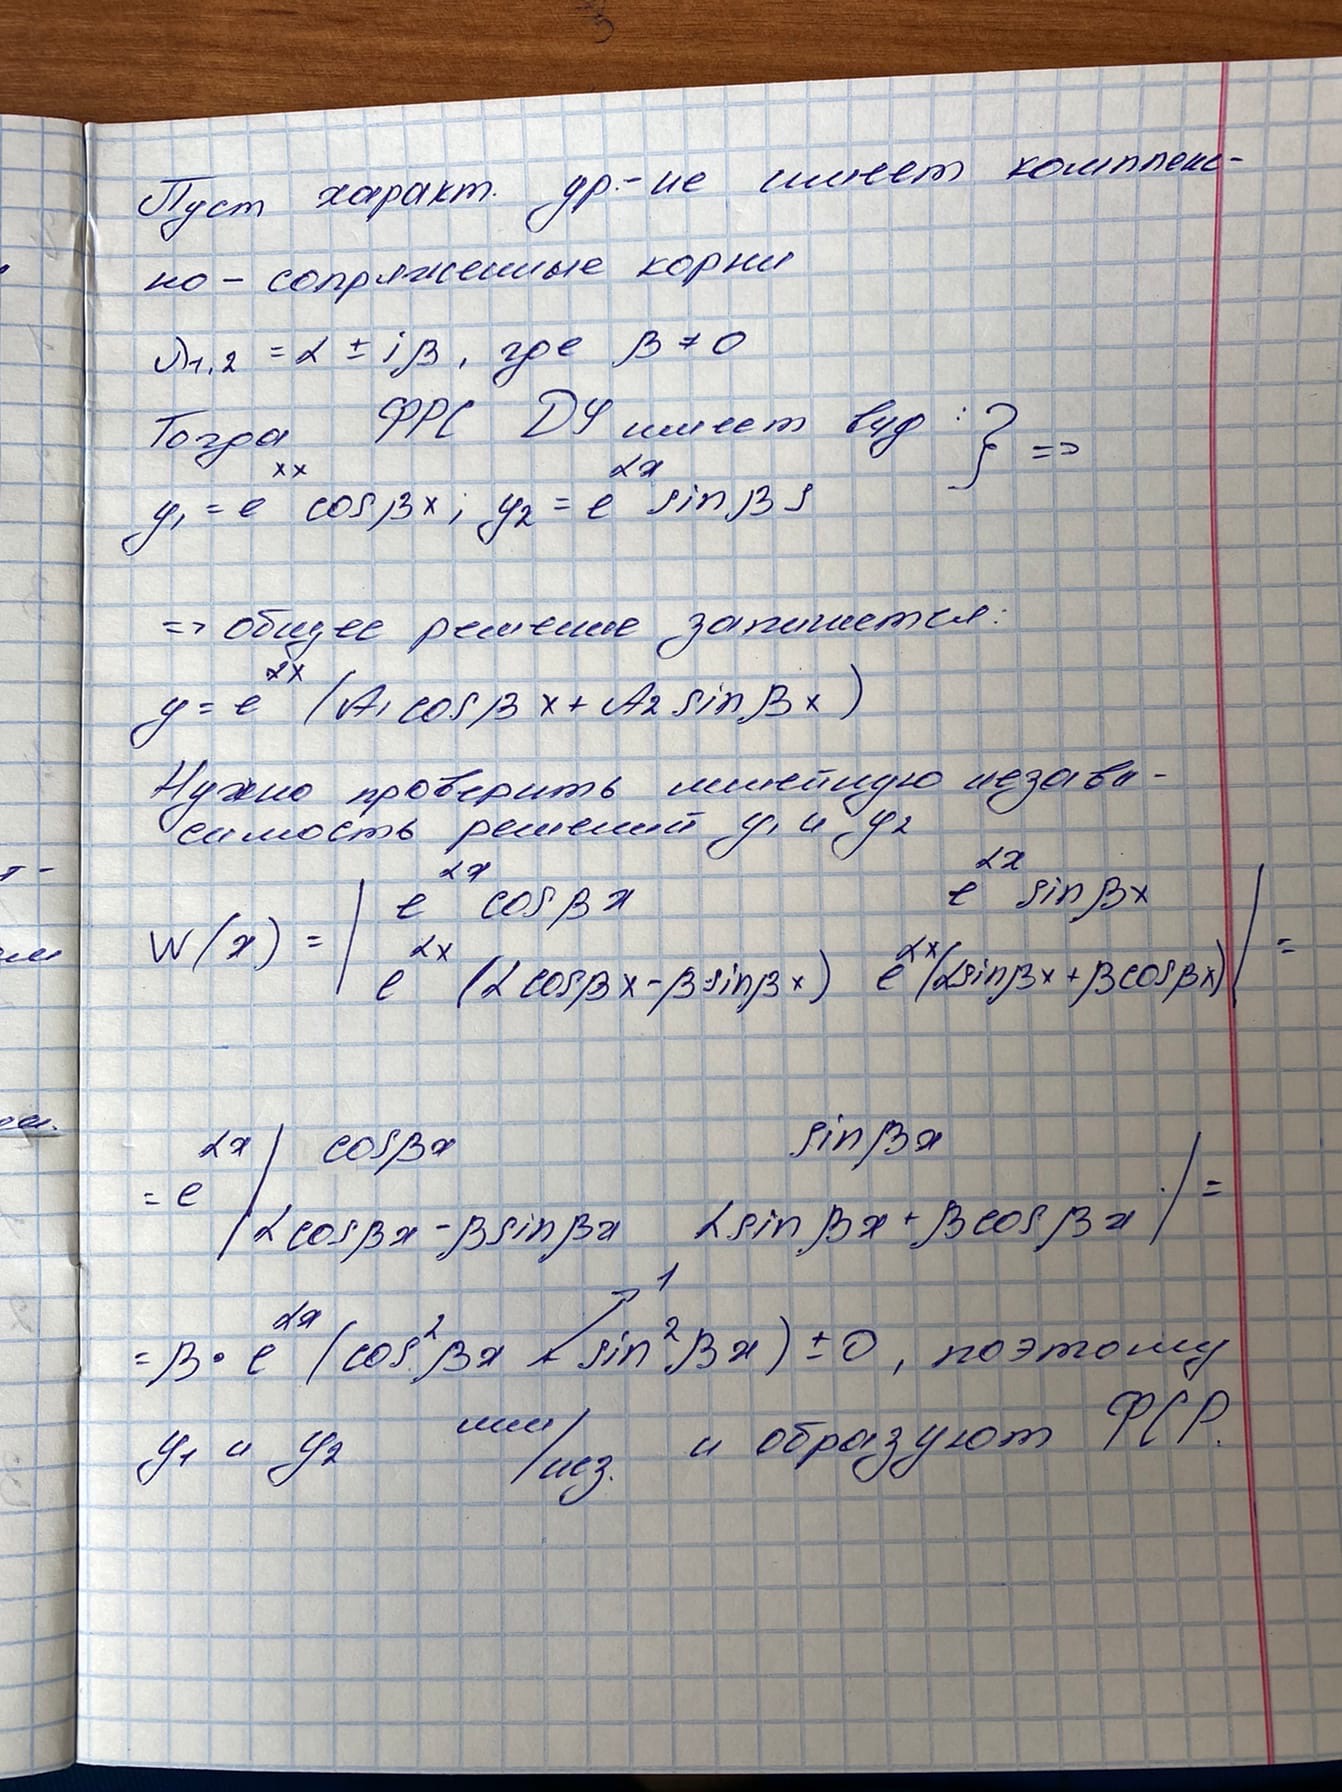 Пуст характ. ур.-ие имеет комплекс-
но-сопряженные корни
λ1,2 = α ± iβ, где β ≠ 0
Тогда ФРС ДУ имеет вид: } =>
y₁ = e^{xx} cosβx; y₂ = e^{αx} sinβs
=> общее решение запишется:
y = e^{αx} (A₁cosβx + A₂ sinβx)
Нужно проверить линейную незави-
симость решений y₁ и y₂
W(x) = | e^{αx} cosβx e^{αx} sinβx
e^{αx} (αcosβx - βsinβx) e^{αx}(αsinβx + βcosβx) | =
= e^{αx} | cosβx sinβx
αcosβx - βsinβx αsinβx + βcosβx | =
1
= β · e^{αx} (cos²βx + sin²βx) ± 0, поэтому
y₁ и y₂ лин/нез. и образуют ФСР.